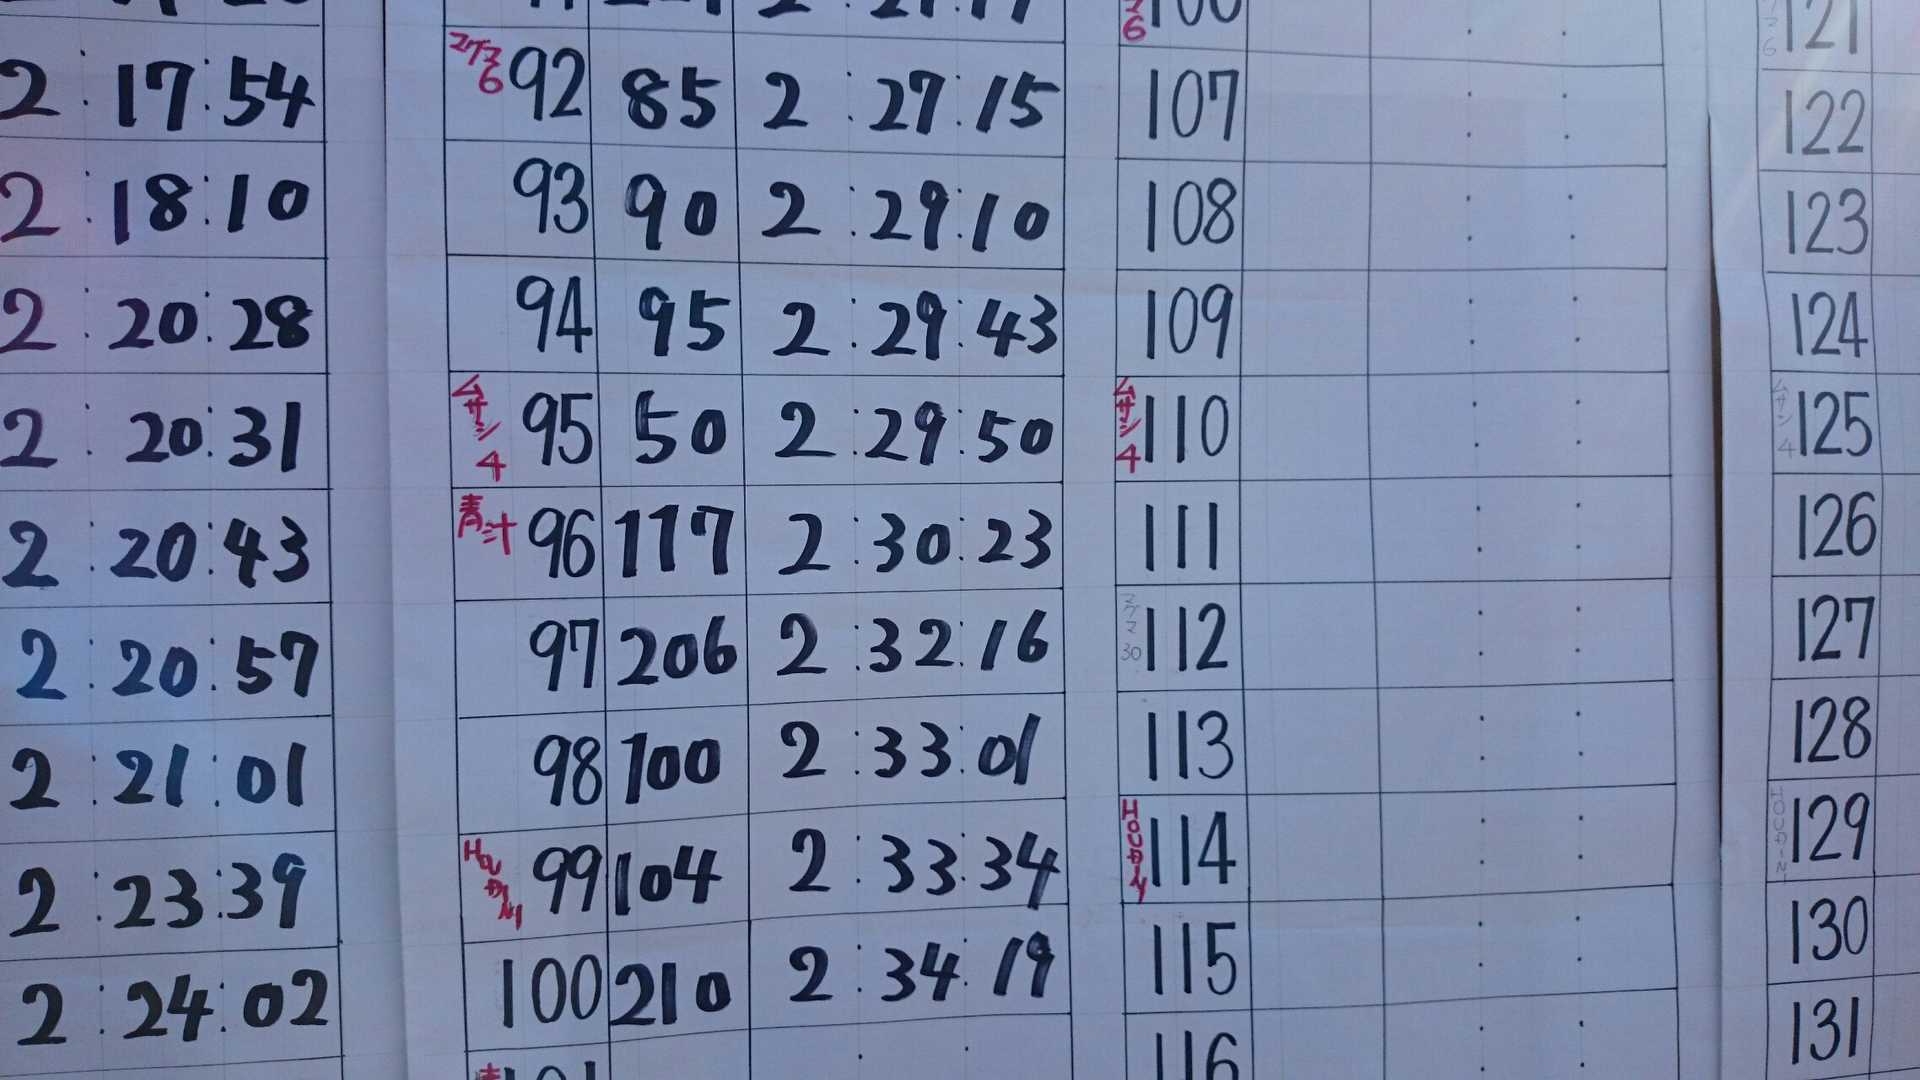 2:17:54
2:18:10
2:20:28
2:20:31
2:20:43
2:20:57
2:21:01
2:23:39
2:24:02
マグマ6 92 85 2:27:15
93 90 2:29:10
94 95 2:29:43
ムサシ4 95 50 2:29:50
青汁 96 117 2:30:23
97 206 2:32:16
98 100 2:33:01
99 104 2:33:34
100 210 2:34:19
107
108
109
ムサシ4 110
111
マグマ30 112
113
114
115
116
121
122
123
124
ムサシ4 125
126
127
128
129
130
131